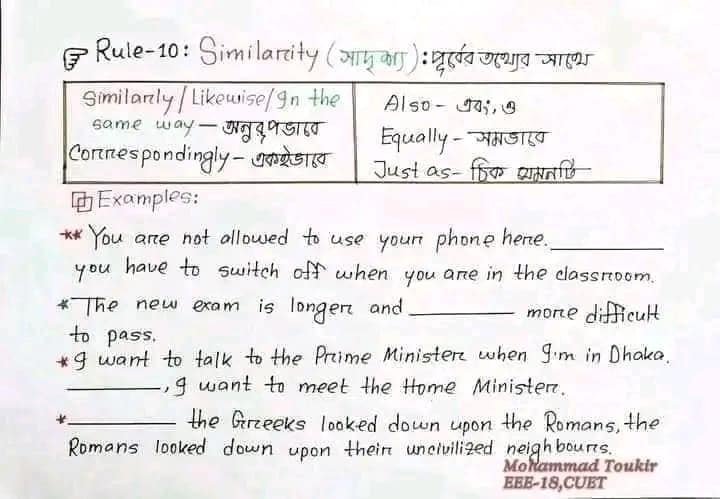 Rule-10: Similarity (সাদৃশ্য) : পূর্বের তথ্যের সাথে
Similarly/Likewise/In the
same way — অনুরূপভাবে
Correspondingly - একইভাবে
Also - এবং, ও
Equally - সমভাবে
Just as - ঠিক যেমনটি
Examples:
** You are not allowed to use your phone here. ________
you have to switch off when you are in the classroom.
* The new exam is longer and ________ more difficult
to pass.
* I want to talk to the Prime Minister when I'm in Dhaka.
________, I want to meet the Home Minister.
* ________ the Greeks looked down upon the Romans, the
Romans looked down upon their uncivilized neighbours.
Mohammad Toukir
EEE-18,CUET